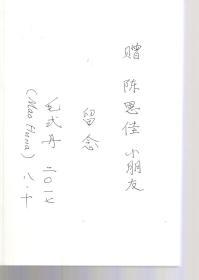 赠 陈思佳 小朋友
留念
毛 二〇一七
(Mao Huna) 八.十